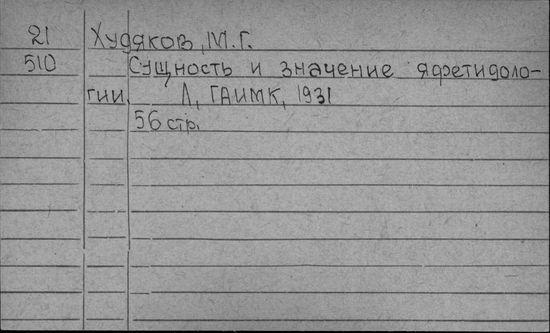 21 Худяков, М.Г.
510 Сущность и значение яфетидоло-
гии. Л, ГАИМК, 1931
56 стр.